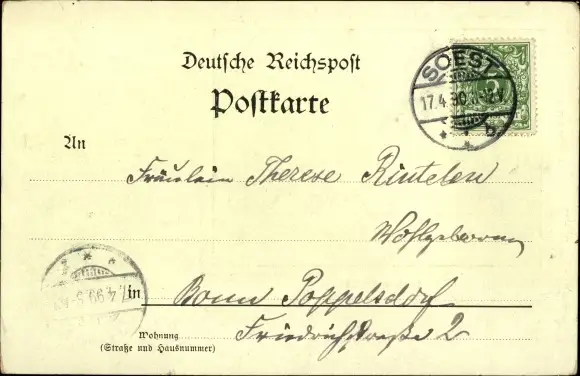 Deutsche Reichspost
Postkarte
SOEST
17.4.90
b
5
An
Fräulein Therese Rintelen
Wohlgeboren
in Bonn Poppelsdorf
Friedrichstraße 2
Wohnung
(Straße und Hausnummer)